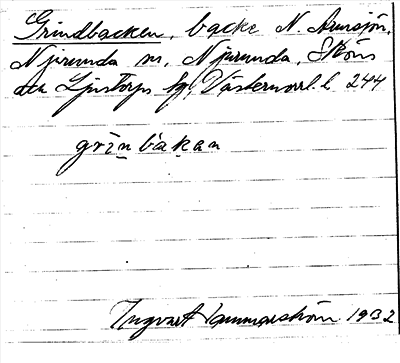 Grindbacken, backe N. Armsjön,
Njurunda sn, Njurunda, Sköns
och Ljustorps tgl, Västernorrl. l. 244
grinbakan
Ingvart Hammarström 1932